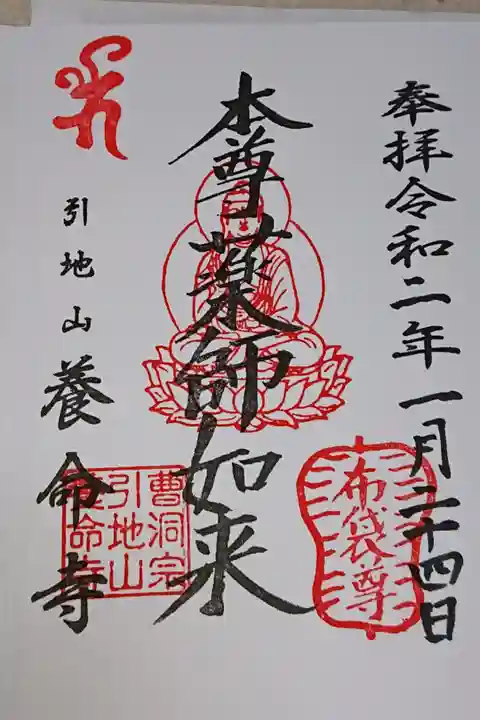 奉拝令和二年一月二十四日
布袋尊
本尊薬師如来
曹洞宗
引地山
養命寺
引地山養命寺